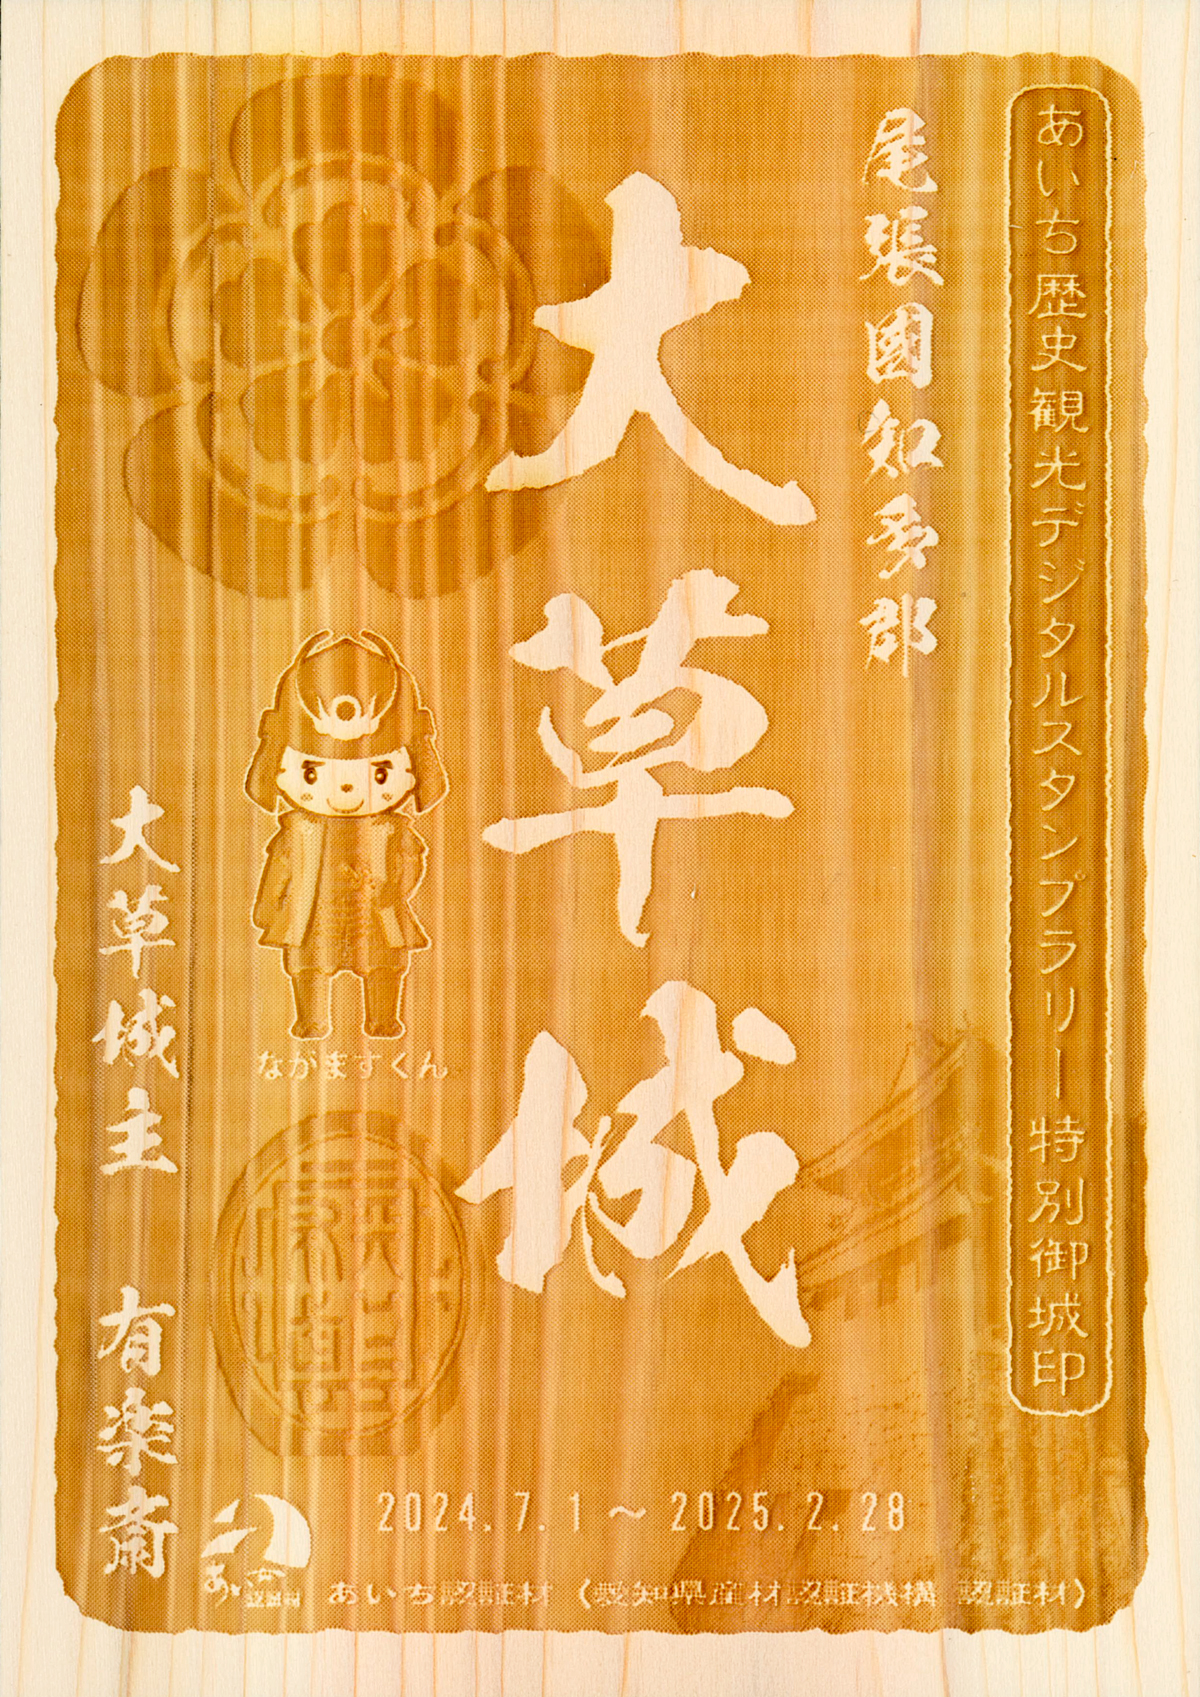 あいち歴史観光デジタルスタンプラリー特別御城印
尾張國知多郡
大草城
ながますくん
大草城主 有楽斎
2024.7.1～2025.2.28
あいち認証材（愛知県産材認証機構 認証材）